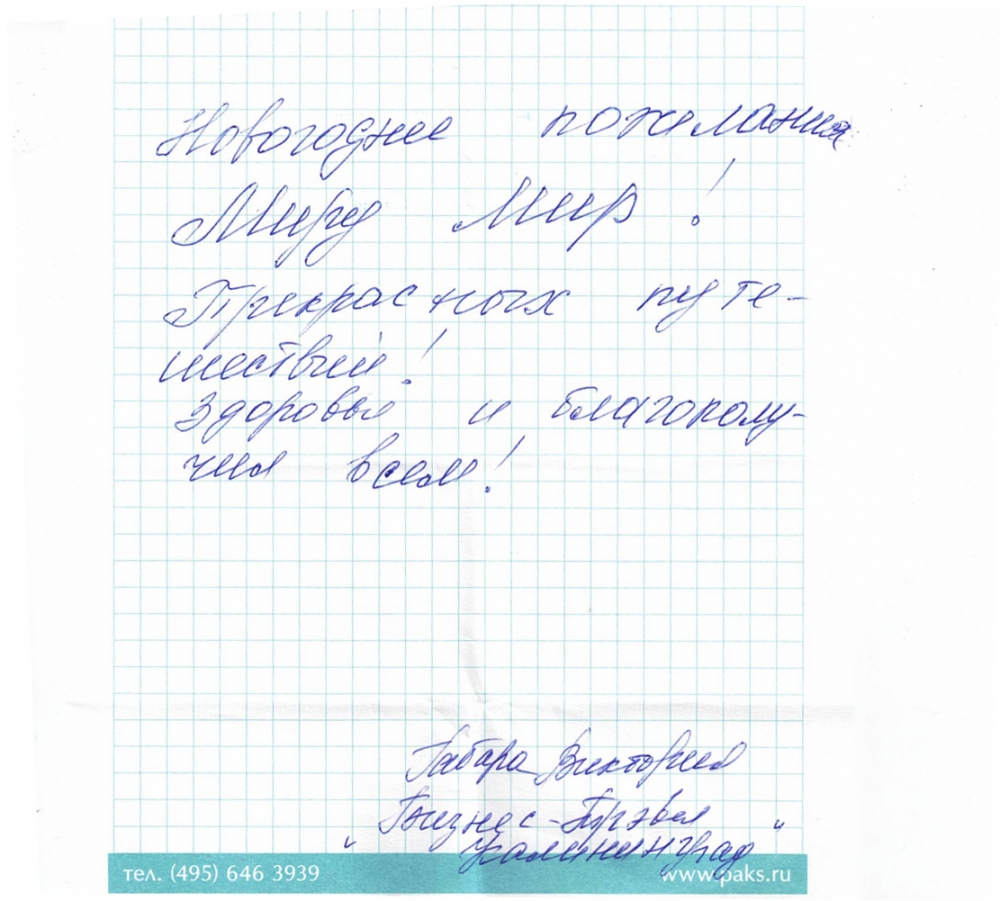 Новогоднее пожелания
Миру Мир!
Прекрасных путе-
шествий!
Здоровья и благополу-
чия всем!
Виктория
"Бизнес-Трэвел"
Калининград
тел. (495) 646 3939
www.paks.ru